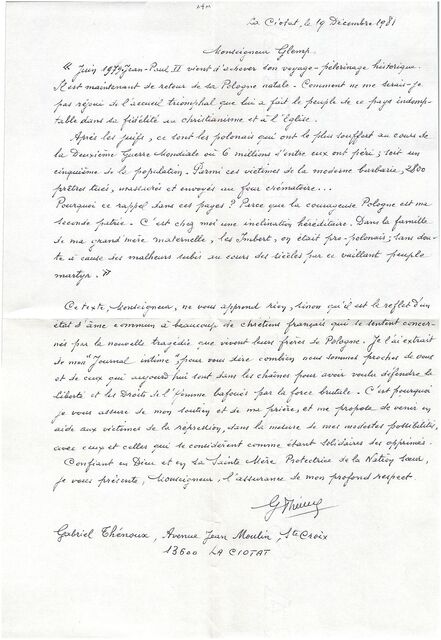 La Ciotat, le 19 Décembre 1981
Monseigneur Glemp.
" Juin 1979 Jean-Paul II vient d'achever son voyage-pèlerinage historique.
Il est maintenant de retour de sa Pologne natale. Comment ne me serais-je
pas réjoui de l'accueil triomphal que lui a fait le peuple de ce pays indomp-
table dans sa fidélité au christianisme et à l'Eglise.
Après les juifs, ce sont les polonais qui ont le plus souffert au cours de
la Deuxième Guerre Mondiale où 6 millions d'entre eux ont péri ; soit un
cinquième de la population. Parmi ces victimes de la moderne barbarie, 2800
prêtres tués, massacrés et envoyés au four crématoire...
Pourquoi ce rappel dans ces pages ? Parce que la courageuse Pologne est ma
seconde patrie. C'est chez moi une inclination héréditaire. Dans la famille
de ma grand'mère maternelle, les Imbert, on était pro-polonais ; sans dou-
te à cause des malheurs subis au cours des siècles par ce vaillant peuple
martyr. "
Ce texte, Monseigneur, ne vous apprend rien, sinon qu'il est le reflet d'un
état d'âme commun à beaucoup de chrétiens français qui se sentent concer-
nés par la nouvelle tragédie que vivent leurs frères de Pologne. Je l'ai extrait
de mon "Journal intime", pour vous dire combien nous sommes proches de vous
et de ceux qui aujourd'hui sont dans les chaînes pour avoir voulu défendre la
liberté et les Droits de l'homme bafoués par la force brutale. C'est pourquoi
je vous assure de mon soutien et de ma prière, et me propose de venir en
aide aux victimes de la répression, dans la mesure de mes modestes possibilités,
avec ceux et celles qui se considèrent comme étant solidaires des opprimés.
Confiant en Dieu et en Sa Sainte Mère Protectrice de la Nation sœur,
je vous présente, Monseigneur, l'assurance de mon profond respect
Gabriel Thénoux, Avenue Jean Moulin, Ste Croix
13600 LA CIOTAT